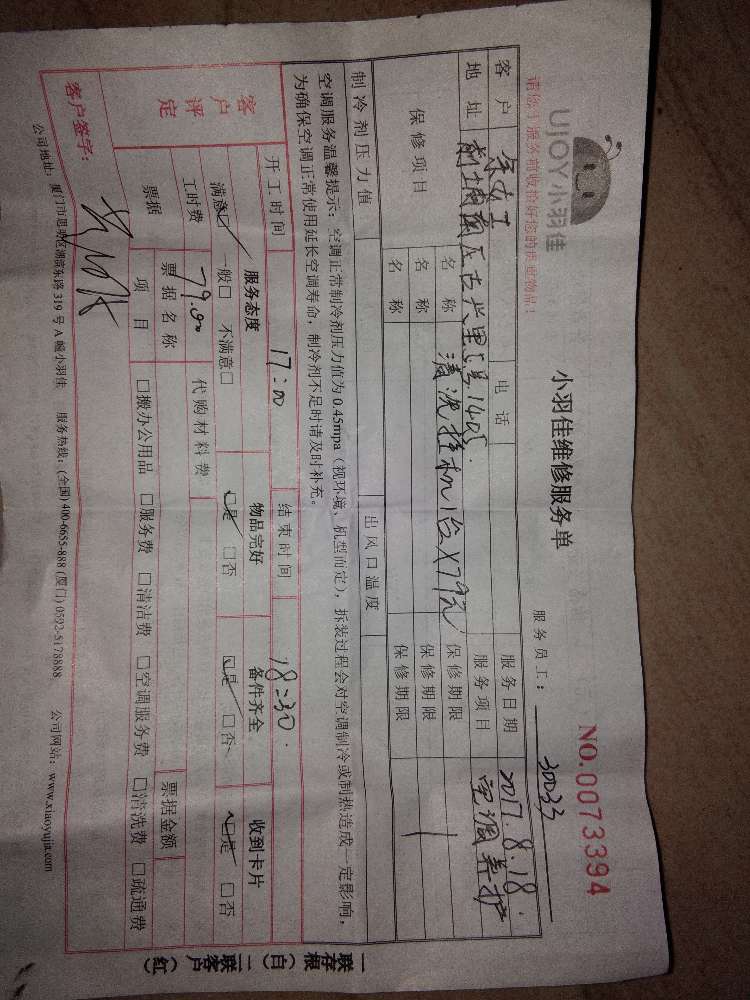 UJOY小羽佳
小羽佳维修服务单
NO.0073394
请您于服务前收拾好您的贵重物品！
服务员工：30033
客户 电话 服务日期 2017.8.18.
地址 服务项目 空调养护
保修项目 名称 清洗挂机1台X79元 保修期限
名称 保修期限
名称 保修期限
制冷剂压力值 出风口温度
空调服务温馨提示：空调正常制冷剂压力值为0.45mpa（视环境、机型而定），拆装过程会对空调制冷或制热造成一定影响，
为确保空调正常使用延长空调寿命，制冷剂不足时请及时补充。
开工时间 17:00 结束时间 18:30.
客户评定 服务态度 物品完好 备件齐全 收到卡片
满意□ 一般□ 不满意□ □是 □否 □是 □否 □是 □否
工时费 79.00 代购材料费
票据 票据名称 票据金额
项目 □搬办公用品 □服务费 □清洁费 □空调服务费 □清洗费 □疏通费
客户签字：
公司地址：厦门市思明区湖滨东路319号A幢小羽佳 服务热线：(全国)400-6655-888 (厦门)0592-5178888 公司网站：www.xiaoyujia.com
一联存根（白）二联客户（红）